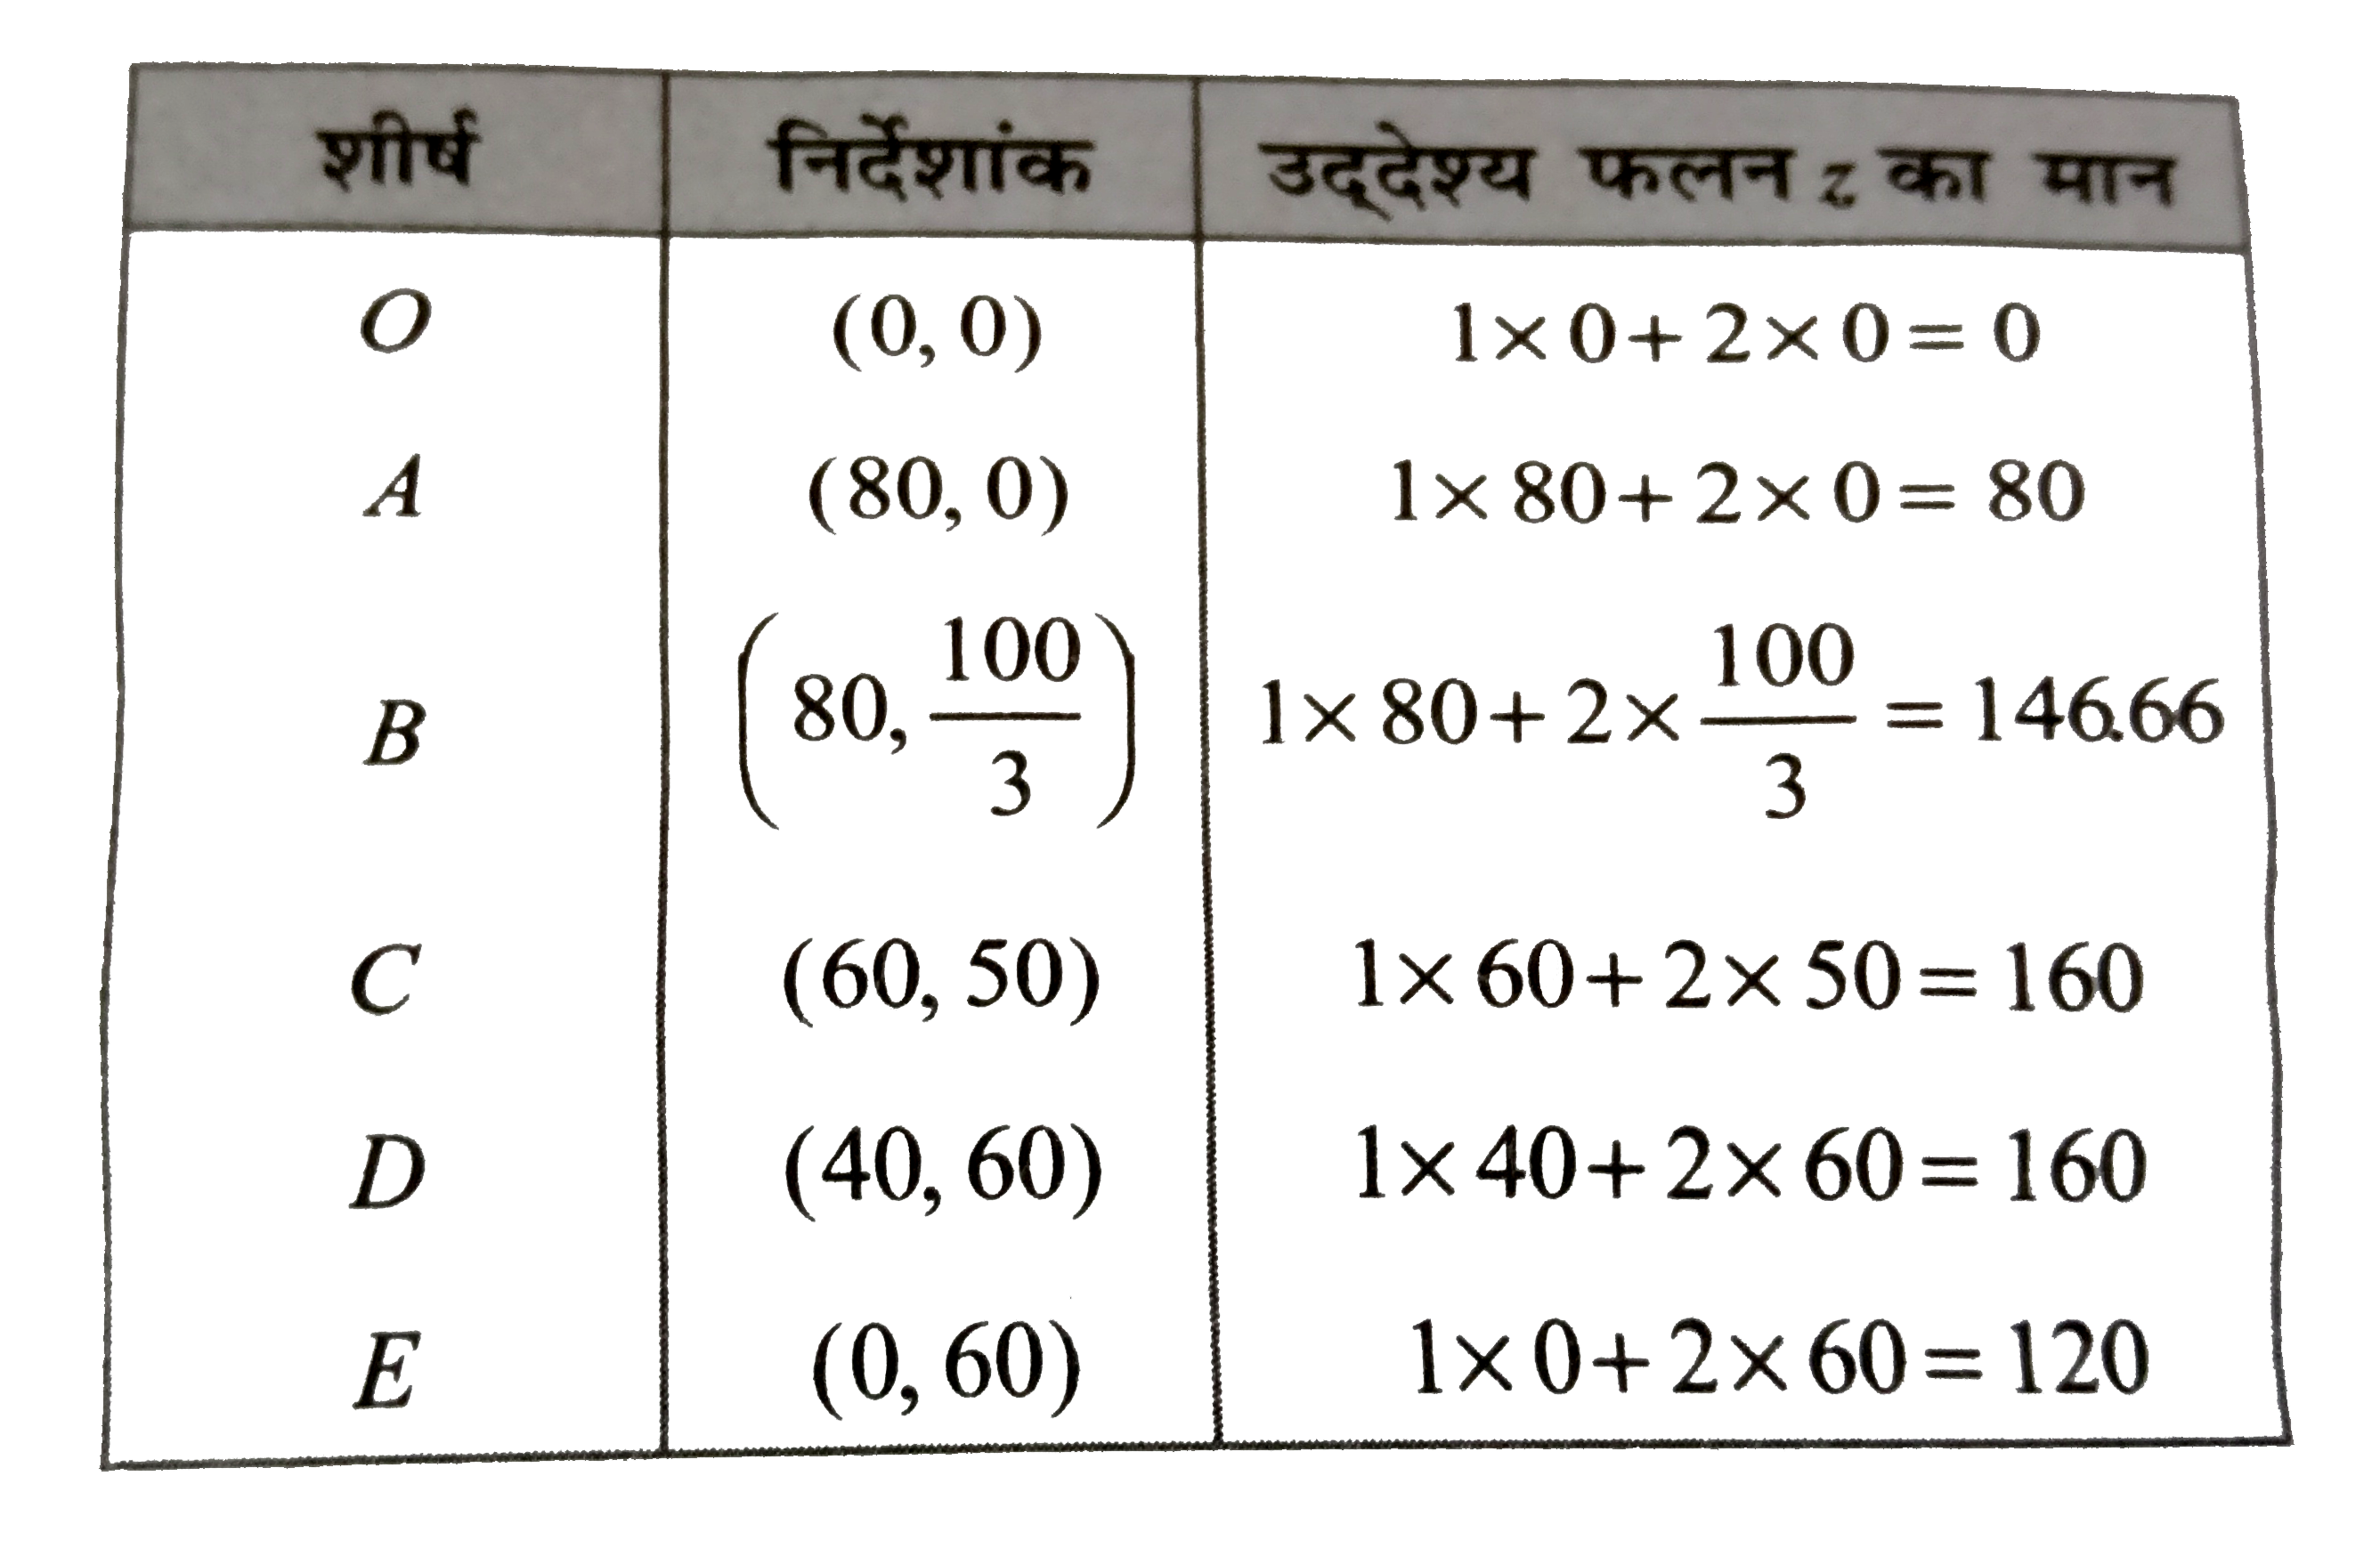 शीर्ष निर्देशांक उद्देश्य फलन z का मान
O (0, 0) 1×0+2×0=0
A (80, 0) 1×80+2×0=80
B (80, 100/3) 1×80+2×100/3=146.66
C (60, 50) 1×60+2×50=160
D (40, 60) 1×40+2×60=160
E (0, 60) 1×0+2×60=120